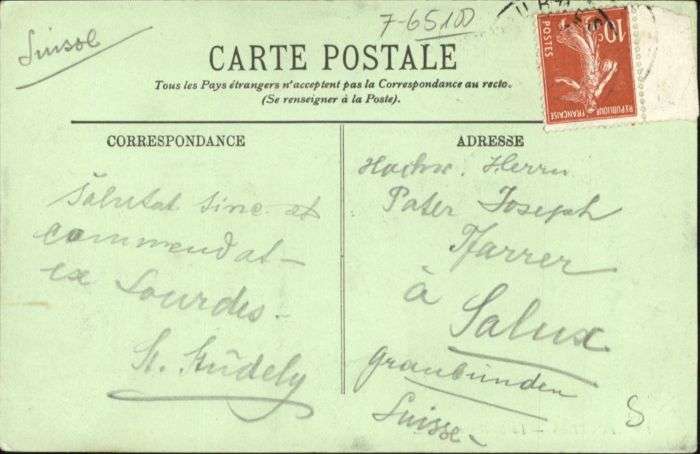 Suisse
7-65100
10c
POSTES
REPUBLIQUE FRANÇAISE
CARTE POSTALE
Tous les Pays étrangers n'acceptent pas la Correspondance au recto.
(Se renseigner à la Poste).
CORRESPONDANCE
Salutat sinc. et
commendat
ex Lourdes.
St. Stüdely
ADRESSE
Hochw. Herrn
Pater Joseph
Pfarrer
à Salux
Graubünden
Suisse
S